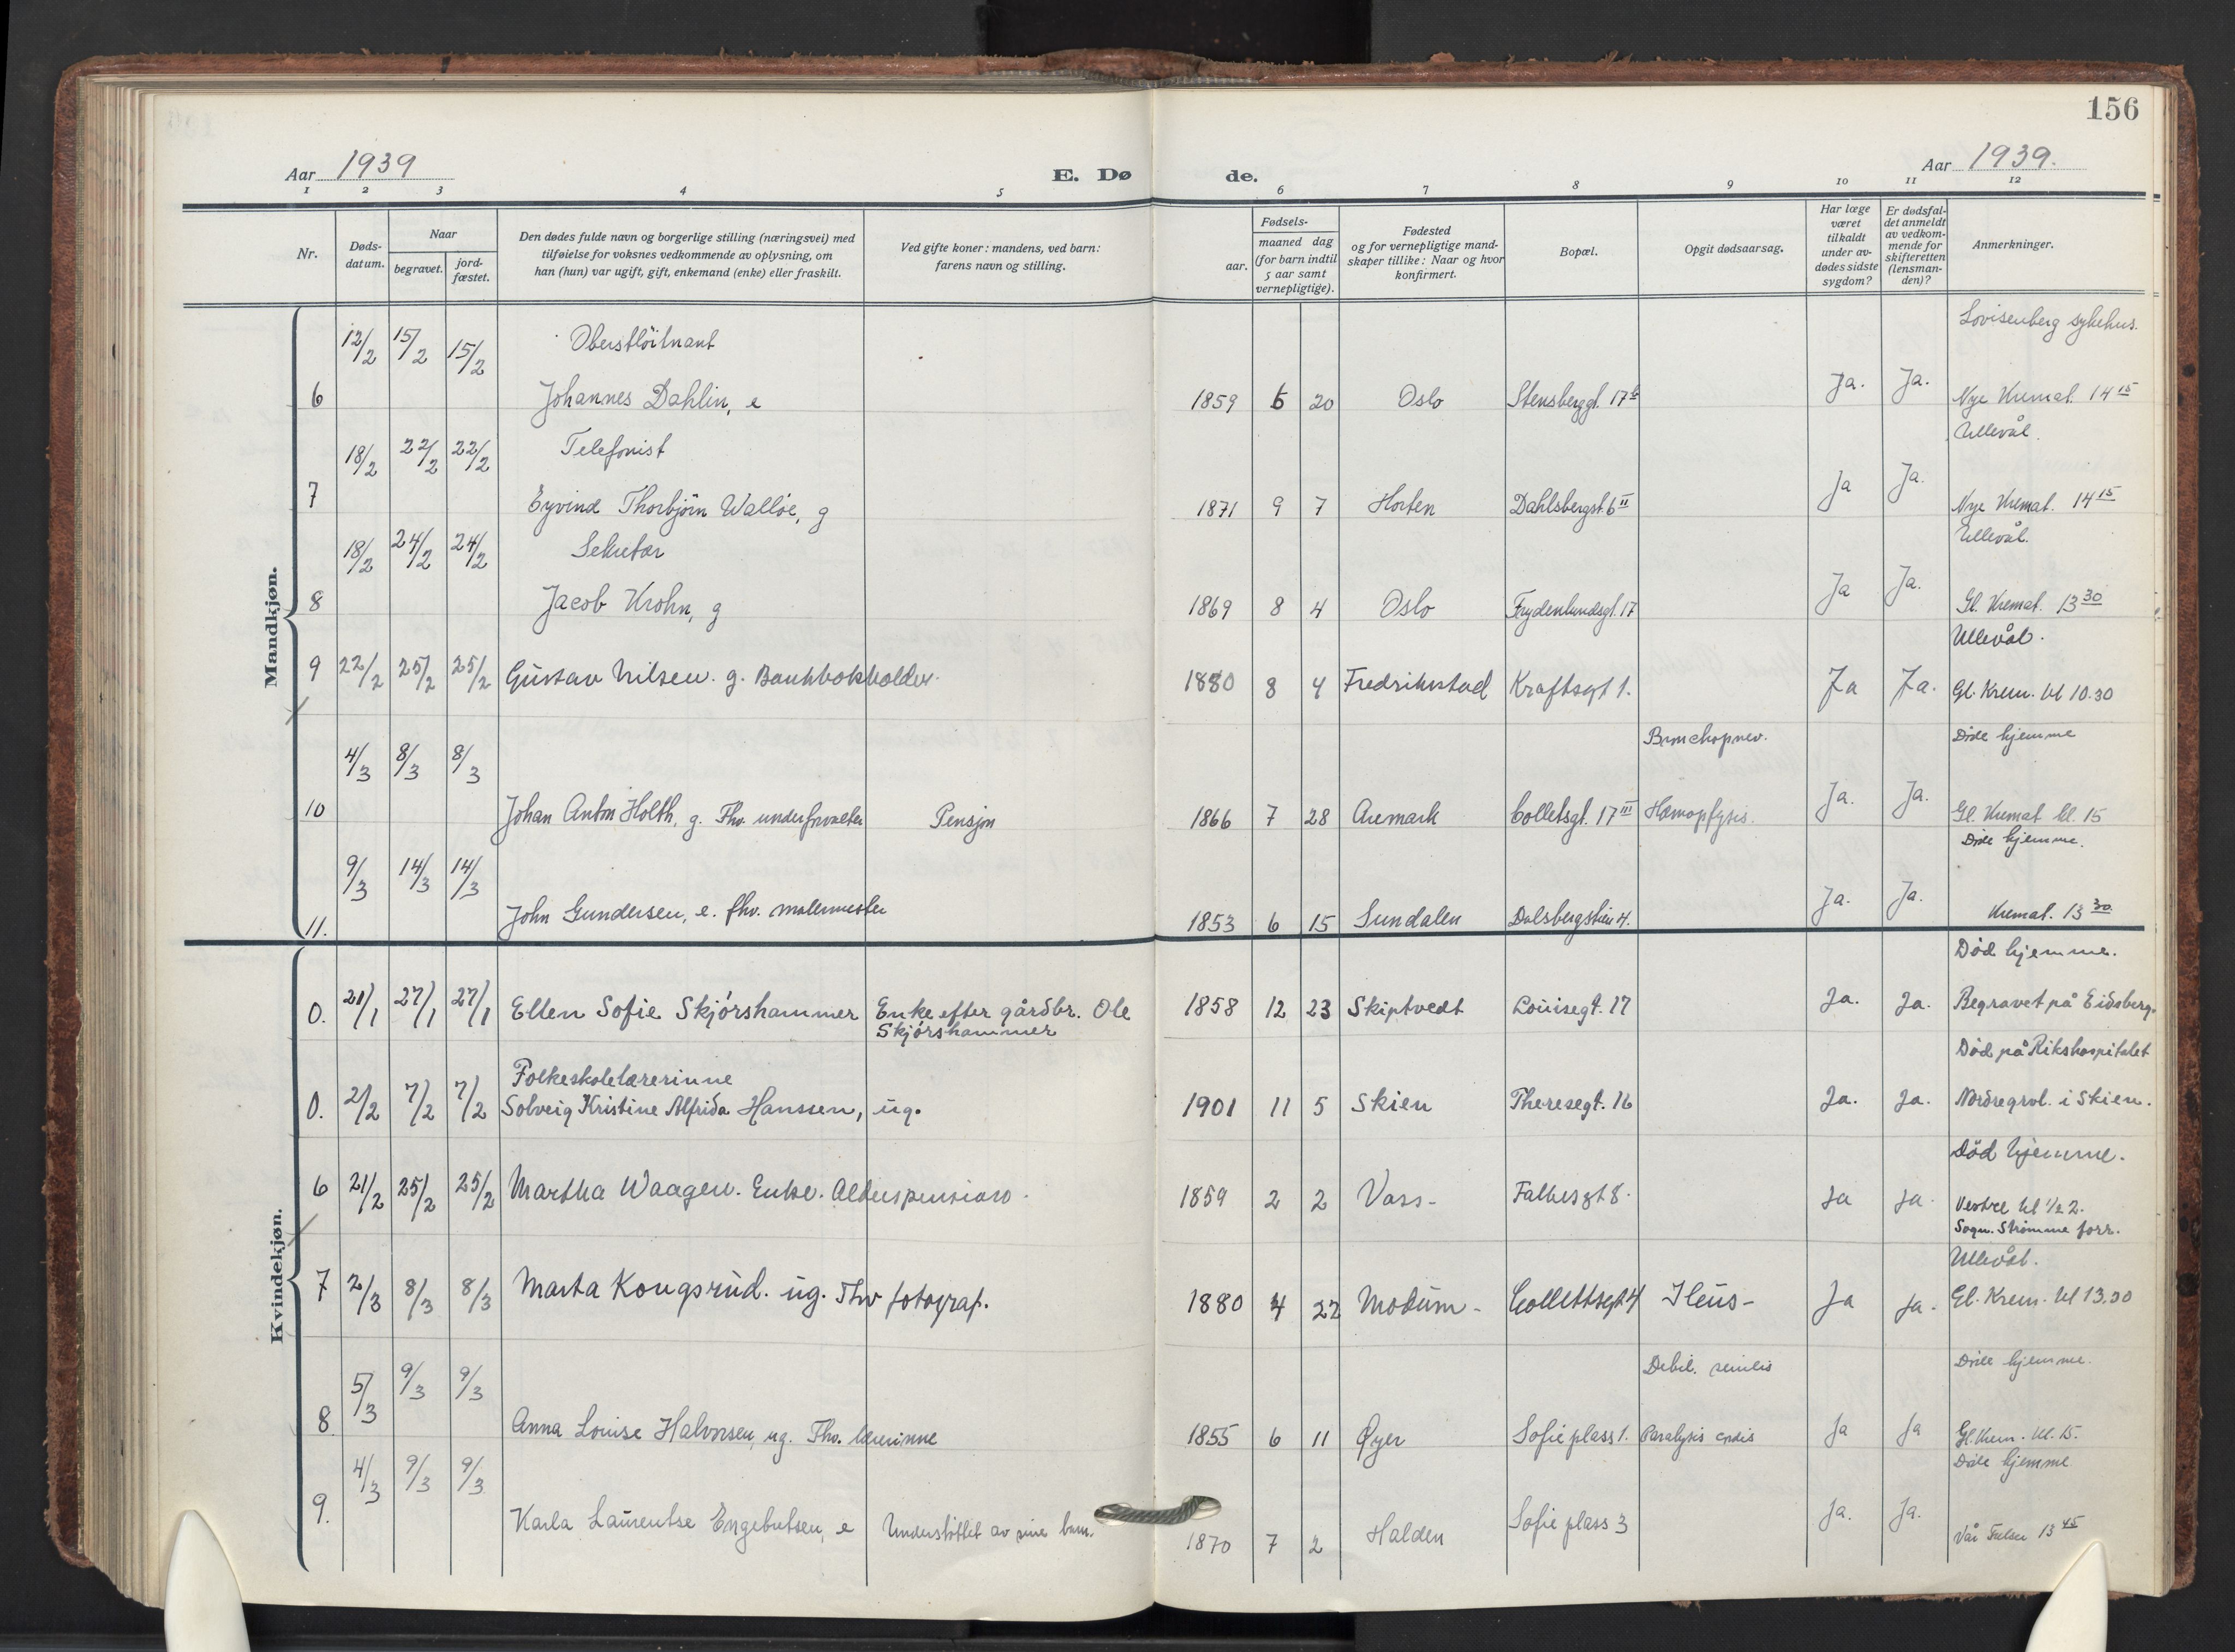 156
Aar 1939 E. Dø de. Aar 1939.
1 2 3 4 5 6 7 8 9 10 11 12
Nr. Døds-datum. Naar begravet. jord-fæstet. Den dødes fulde navn og borgerlige stilling (næringsvei) med tilføielse for voksnes vedkommende av oplysning, om han (hun) var ugift, gift, enkemand (enke) eller fraskilt. Ved gifte koner: mandens, ved barn: farens navn og stilling. Fødsels- aar. maaned dag (for barn indtil 5 aar samt vernepligtige). Fødested og for vernepligtige mand-skaper tillike: Naar og hvor konfirmert. Bopæl. Opgit dødsaarsag. Har læge været tilkaldt under av-dødes sidste sygdom? Er dødsfal-det anmeldt av vedkom-mende for skifteretten (lensman-den)? Anmerkninger.
Mandkjøn.
12/2 15/2 15/2 Oberstløitnant Lovisenberg sykehus.
6 Johannes Dahlin, e 1859 6 20 Oslo Stensberggt. 17b Ja. Ja. Nye Kremat. 14 15
18/2 22/2 22/2 Telefonist Ullevål.
7 Eyvind Thorbjørn Walløe, g 1871 9 7 Horten Dahlsbergst. 6 II Ja Ja. Nye Kremat. 14 15
18/2 24/2 24/2 Sekretær Ullevål.
8 Jacob Krohn, g 1869 8 4 Oslo Frydenlundsgt. 17 Ja Ja. Gl. Kremat. 13 30
Ullevål.
9 22/2 25/2 25/2 Gustav Nilsen. g. Bankbokholder. 1880 8 4 Fredrikstad Kraftsgt 1. Ja Ja. Gl. Krem. kl 10.30
4/3 8/3 8/3 Bronchopnev. Døde hjemme
10 Johan Anton Holth, g. Fhv. underforvalter Pensjon 1866 7 28 Aremark Colletsgt. 17 III Hæmopfysis. Ja. Ja. Gl. Kremat kl. 15
9/3 14/3 14/3 Døde hjemme.
11. John Gundersen, e. fhv. malermester 1853 6 15 Sundalen Dalsbergstien 4. Ja. Ja. Kremat. 13 30
Kvindekjøn.
Død hjemme.
0. 21/1 27/1 27/1 Ellen Sofie Skjørshammer Enke efter gårdbr. Ole 1858 12 23 Skiptvedt Louisegt. 17 Ja. Ja. Begravet på Eidsberg.
Skjørshammer
Død på Rikshospitalet
Folkeskolelærerinne
0. 2/2 7/2 7/2 Solveig Kristine Alfrida Hanssen, ug. 1901 11 5 Skien Theresegt. 16 Ja. Ja. Nordregravl. i Skien.
Død hjemme.
6 21/2 25/2 25/2 Martha Waagen. Enke. Alderspension. 1859 2 2 Voss- Falbesgt 8. Ja Ja. Vestre kl 1/2 2.
Sogn. Strømme forr.
Ullevål.
7 2/3 8/3 8/3 Marta Kongsrud. ug. Fhv fotograf. 1880 4 22 Modum- Collettsgt 4 Ileus- Ja Ja. Gl. Krem. kl 13.30
5/3 9/3 9/3 Debil. senilis Døde hjemme.
8. Anna Louise Halvorsen, ug. Fhv. lærerinne 1855 6 11 Øyer Sofie plass 1. Paralysis cordis Ja Ja Gl. Krem. kl. 15.
4/3 9/3 9/3 Døde hjemme
9. Karla Laurentse Engebretsen, e Understøttet av sine barn. 1870 7 2 Halden Sofie plass 3 Ja. Ja. Vår Frelser 13 45